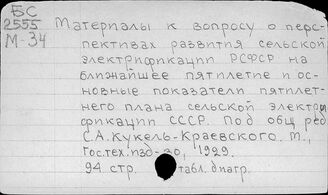 БС
2555
М-34
Материалы к вопросу о перс-
пективах развития сельской
электрификации РСФСР на
ближайшее пятилетие и ос-
новные показатели пятилет-
него плана сельской электри
фикации СССР. Под общ ред
С.А. Кукель-Краевского. М.,
Гос.тех.изд-во, 1929.
94 стр. табл. диагр.